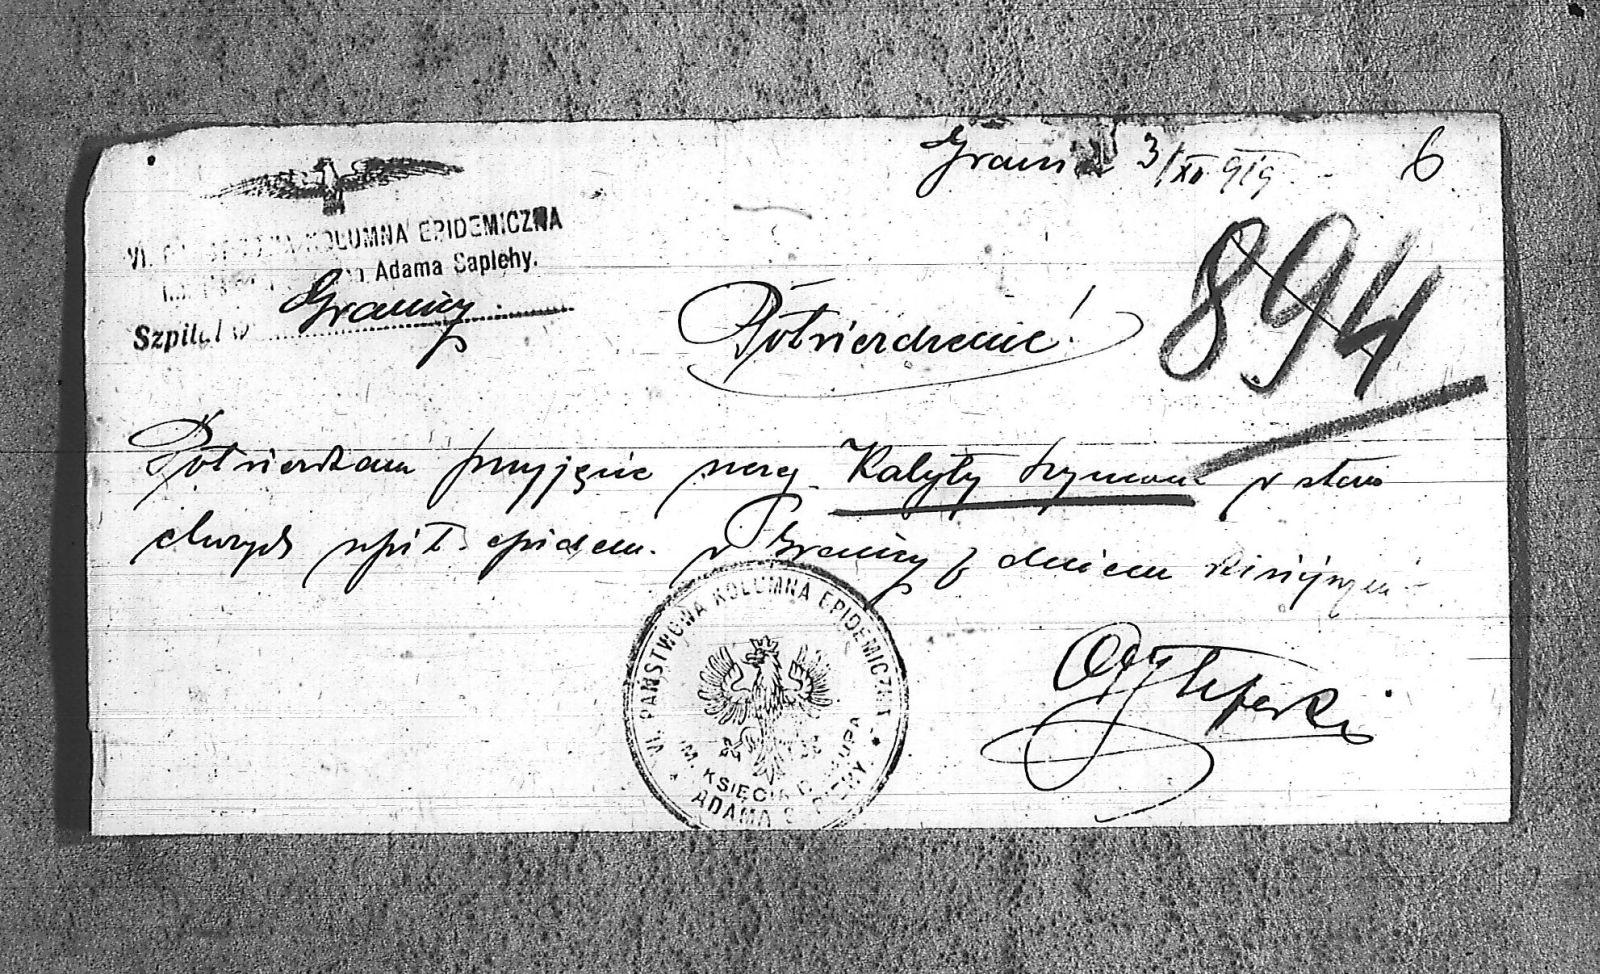 3/XII 919
6
VI. KOLUMNA EPIDEMICZNA
Adama Sapiehy.
Szpital w Granicy
894
Potwierdzenie!
Potwierdzam przyjęcie szereg. Kalyty Szymona w stan
chorych szpit. epidem. w Granicy z dniem dzisiejszym
VI. PAŃSTWOWA KOLUMNA EPIDEMICZNA
IM. KSIĘCIA
ADAMA